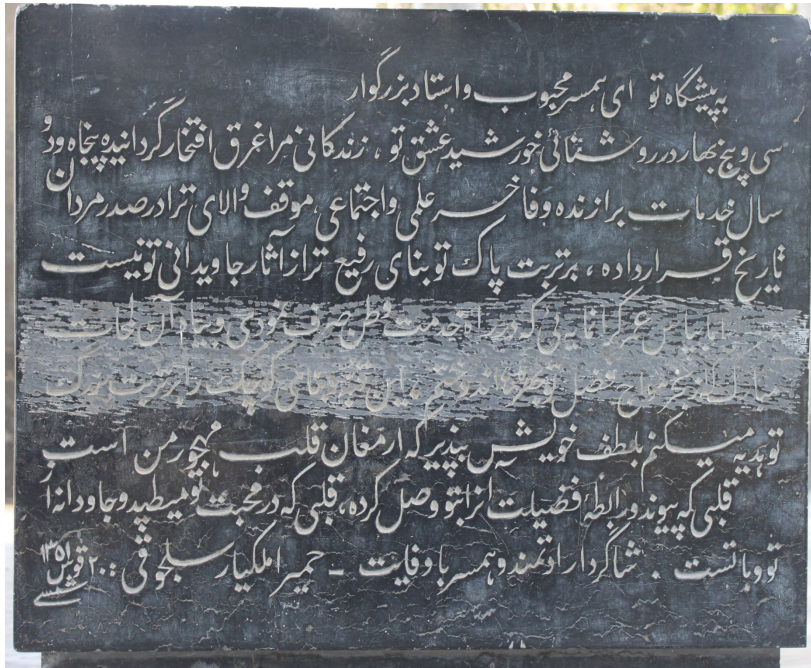 به پیشگاه تو ای همسر محبوب و استاد بزرگوار
سی و پنج بهار در روشنائی خورشید عشق تو ، زندگانی مرا غرق افتخار گردانیده پنجاه و دو
سال خدمات برازنده و فاخر علمی و اجتماعی، موقف والای ترا در صدر مردان
تاریخ قرار داده ، بر تربت پاک تو بنای رفیع تر از آثار جاویدانی تو نیست
اما بپاس عمر گرانمایی که در راه خدمت وطن صرف نمودی و بپاس آن لمحات
از بحر مواج فضل تو این را بر تربت بزرگ
تو هدیه میکنم بلطف خویش بپذیر که ارمغان قلب مهجور من است
قلبی که پیوند و رابطهٔ فضیلت آنرا بتو وصل کرده ، قلبی که در محبت تو میطپد و جاودانه از
تو و با تست . شاگرد ارادتمند و همسر با وفایت - حمیرا ملکیار سلجوقی : ۲۰ قوس ۱۳۵۱
شمسی